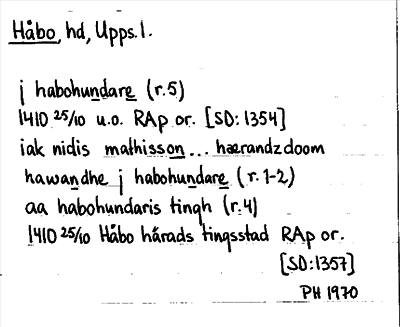 Håbo, hd, Upps.l.
j habohundare (r.5)
1410 25/10 u.o. RAp or. [SD:1354]
iak nidis mathisson... hærandzdoom
hawandhe j habohundare (r.1-2)
aa habohundaris tingh (r.4)
1410 25/10 Håbo härads tingsstad RAp or.
[SD:1357]
PH 1970